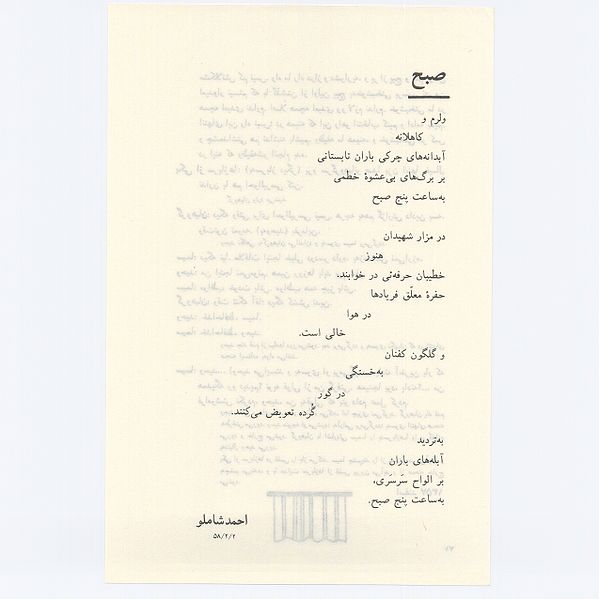 صبح
ولرم و
کاهلانه
آبدانه‌های چرکی باران تابستانی
بر برگ‌های بی‌عشوهٔ خطمی
به‌ساعت پنج صبح
در مزار شهیدان
هنوز
خطیبان حرفه‌ئی در خوابند.
حفرهٔ معلّق فریادها
در هوا
خالی است.
و گلگون کفنان
به‌خستگی
در گور
گُرده تعویض می‌کنند.
به‌تردید
آبله‌های باران
بر الواح سَرسَری،
به‌ساعت پنج صبح.
احمد شاملو
۵۸/۲/۲